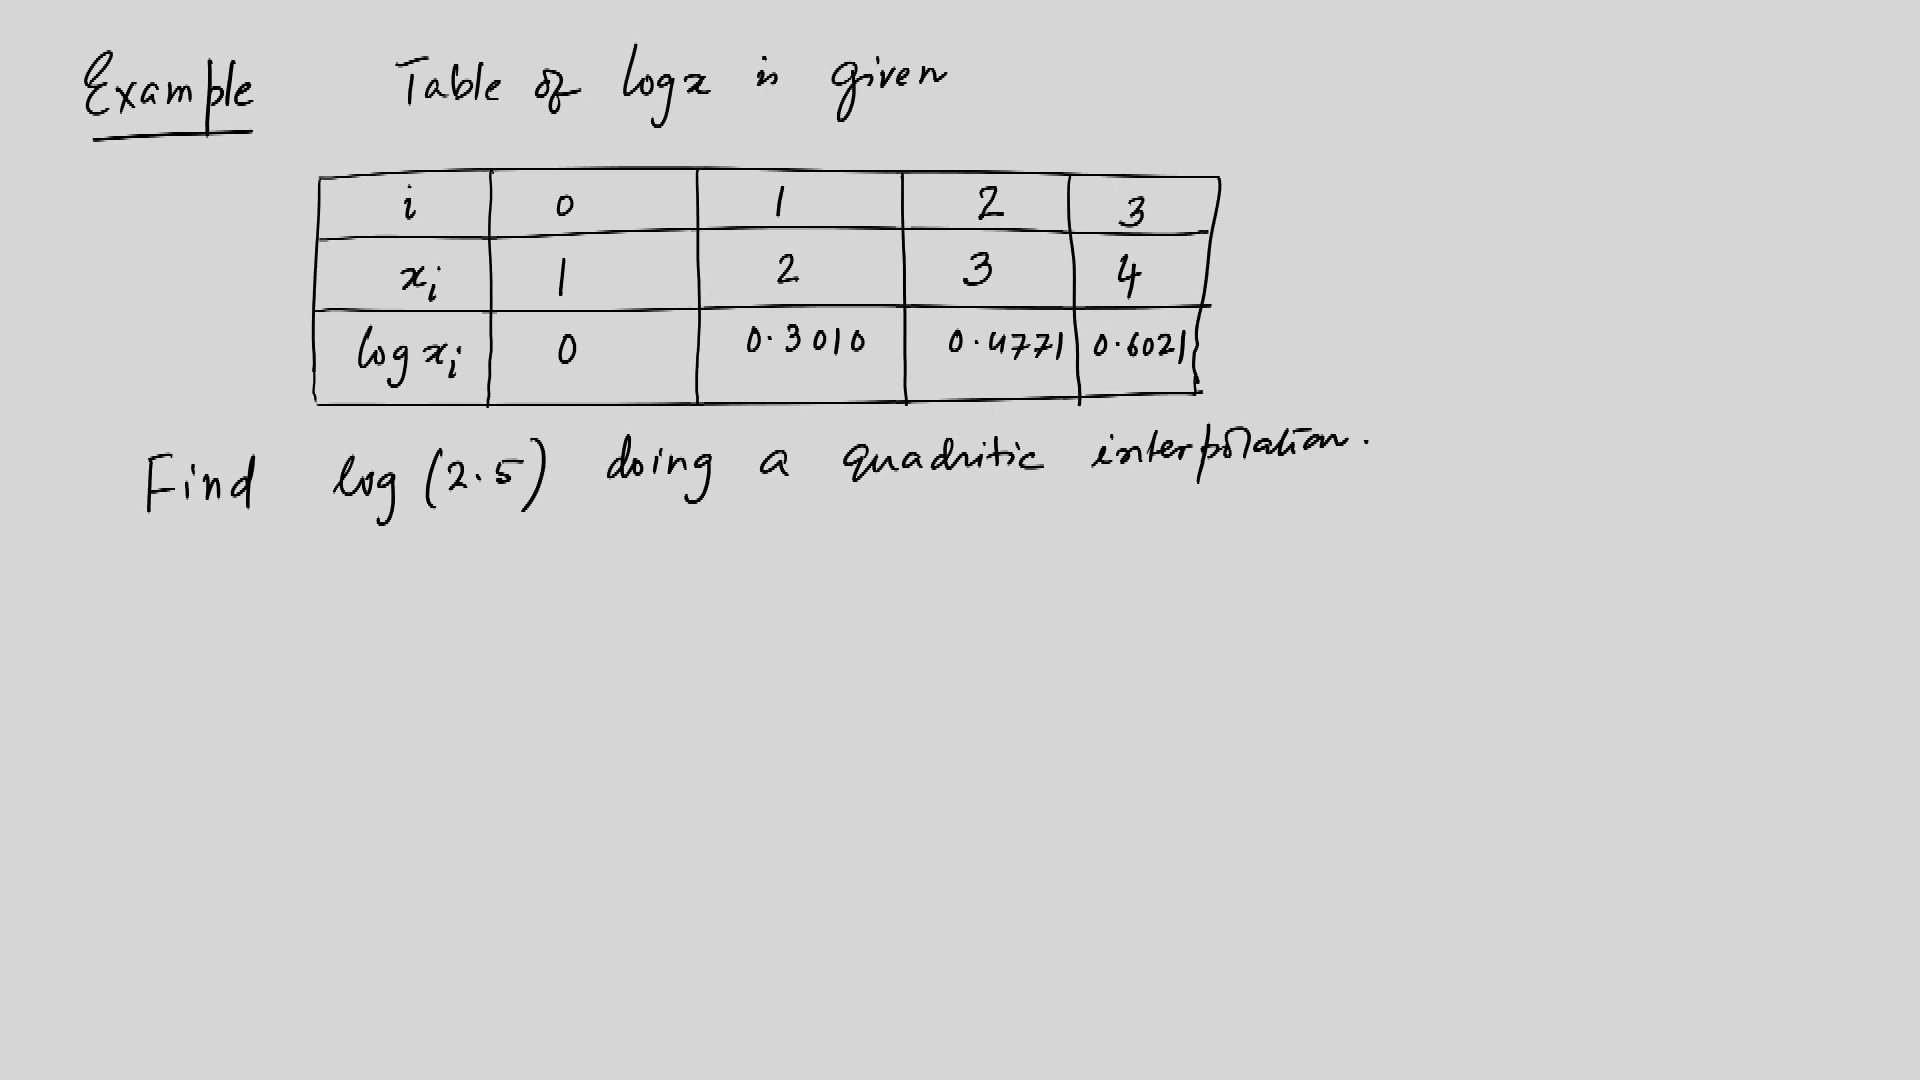 Example Table of log x is given
i 0 1 2 3
xi 1 2 3 4
log xi 0 0.3010 0.4771 0.6021
Find log (2.5) doing a quadritic interpolation.